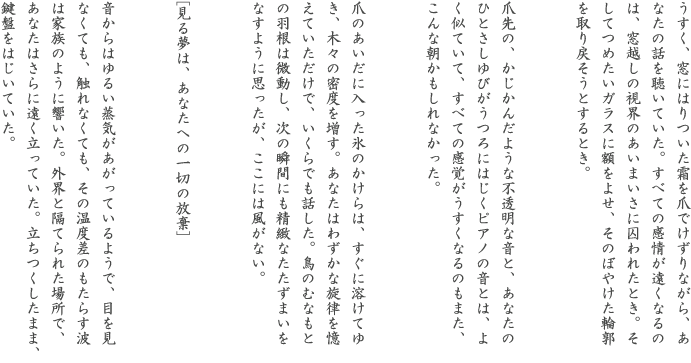 うすく、窓にはりついた霜を爪でけずりながら、あ
なたの話を聴いていた。すべての感情が遠くなるの
は、窓越しの視界のあいまいさに囚われたとき。そ
してつめたいガラスに額をよせ、そのぼやけた輪郭
を取り戻そうとするとき。
爪先の、かじかんだような不透明な音と、あなたの
ひとさしゆびがうつろにはじくピアノの音とは、よ
く似ていて、すべての感覚がうすくなるのもまた、
こんな朝かもしれなかった。
爪のあいだに入った氷のかけらは、すぐに溶けてゆ
き、木々の密度を増す。あなたはわずかな旋律を憶
えていただけで、いくらでも話した。鳥のむなもと
の羽根は微動し、次の瞬間にも精緻なたたずまいを
なすように思ったが、ここには風がない。
[見る夢は、あなたへの一切の放棄]
音からはゆるい蒸気があがっているようで、目を見
なくても、触れなくても、その温度差のもたらす波
は家族のように響いた。外界と隔てられた場所で、
あなたはさらに遠く立っていた。立ちつくしたまま、
鍵盤をはじいていた。